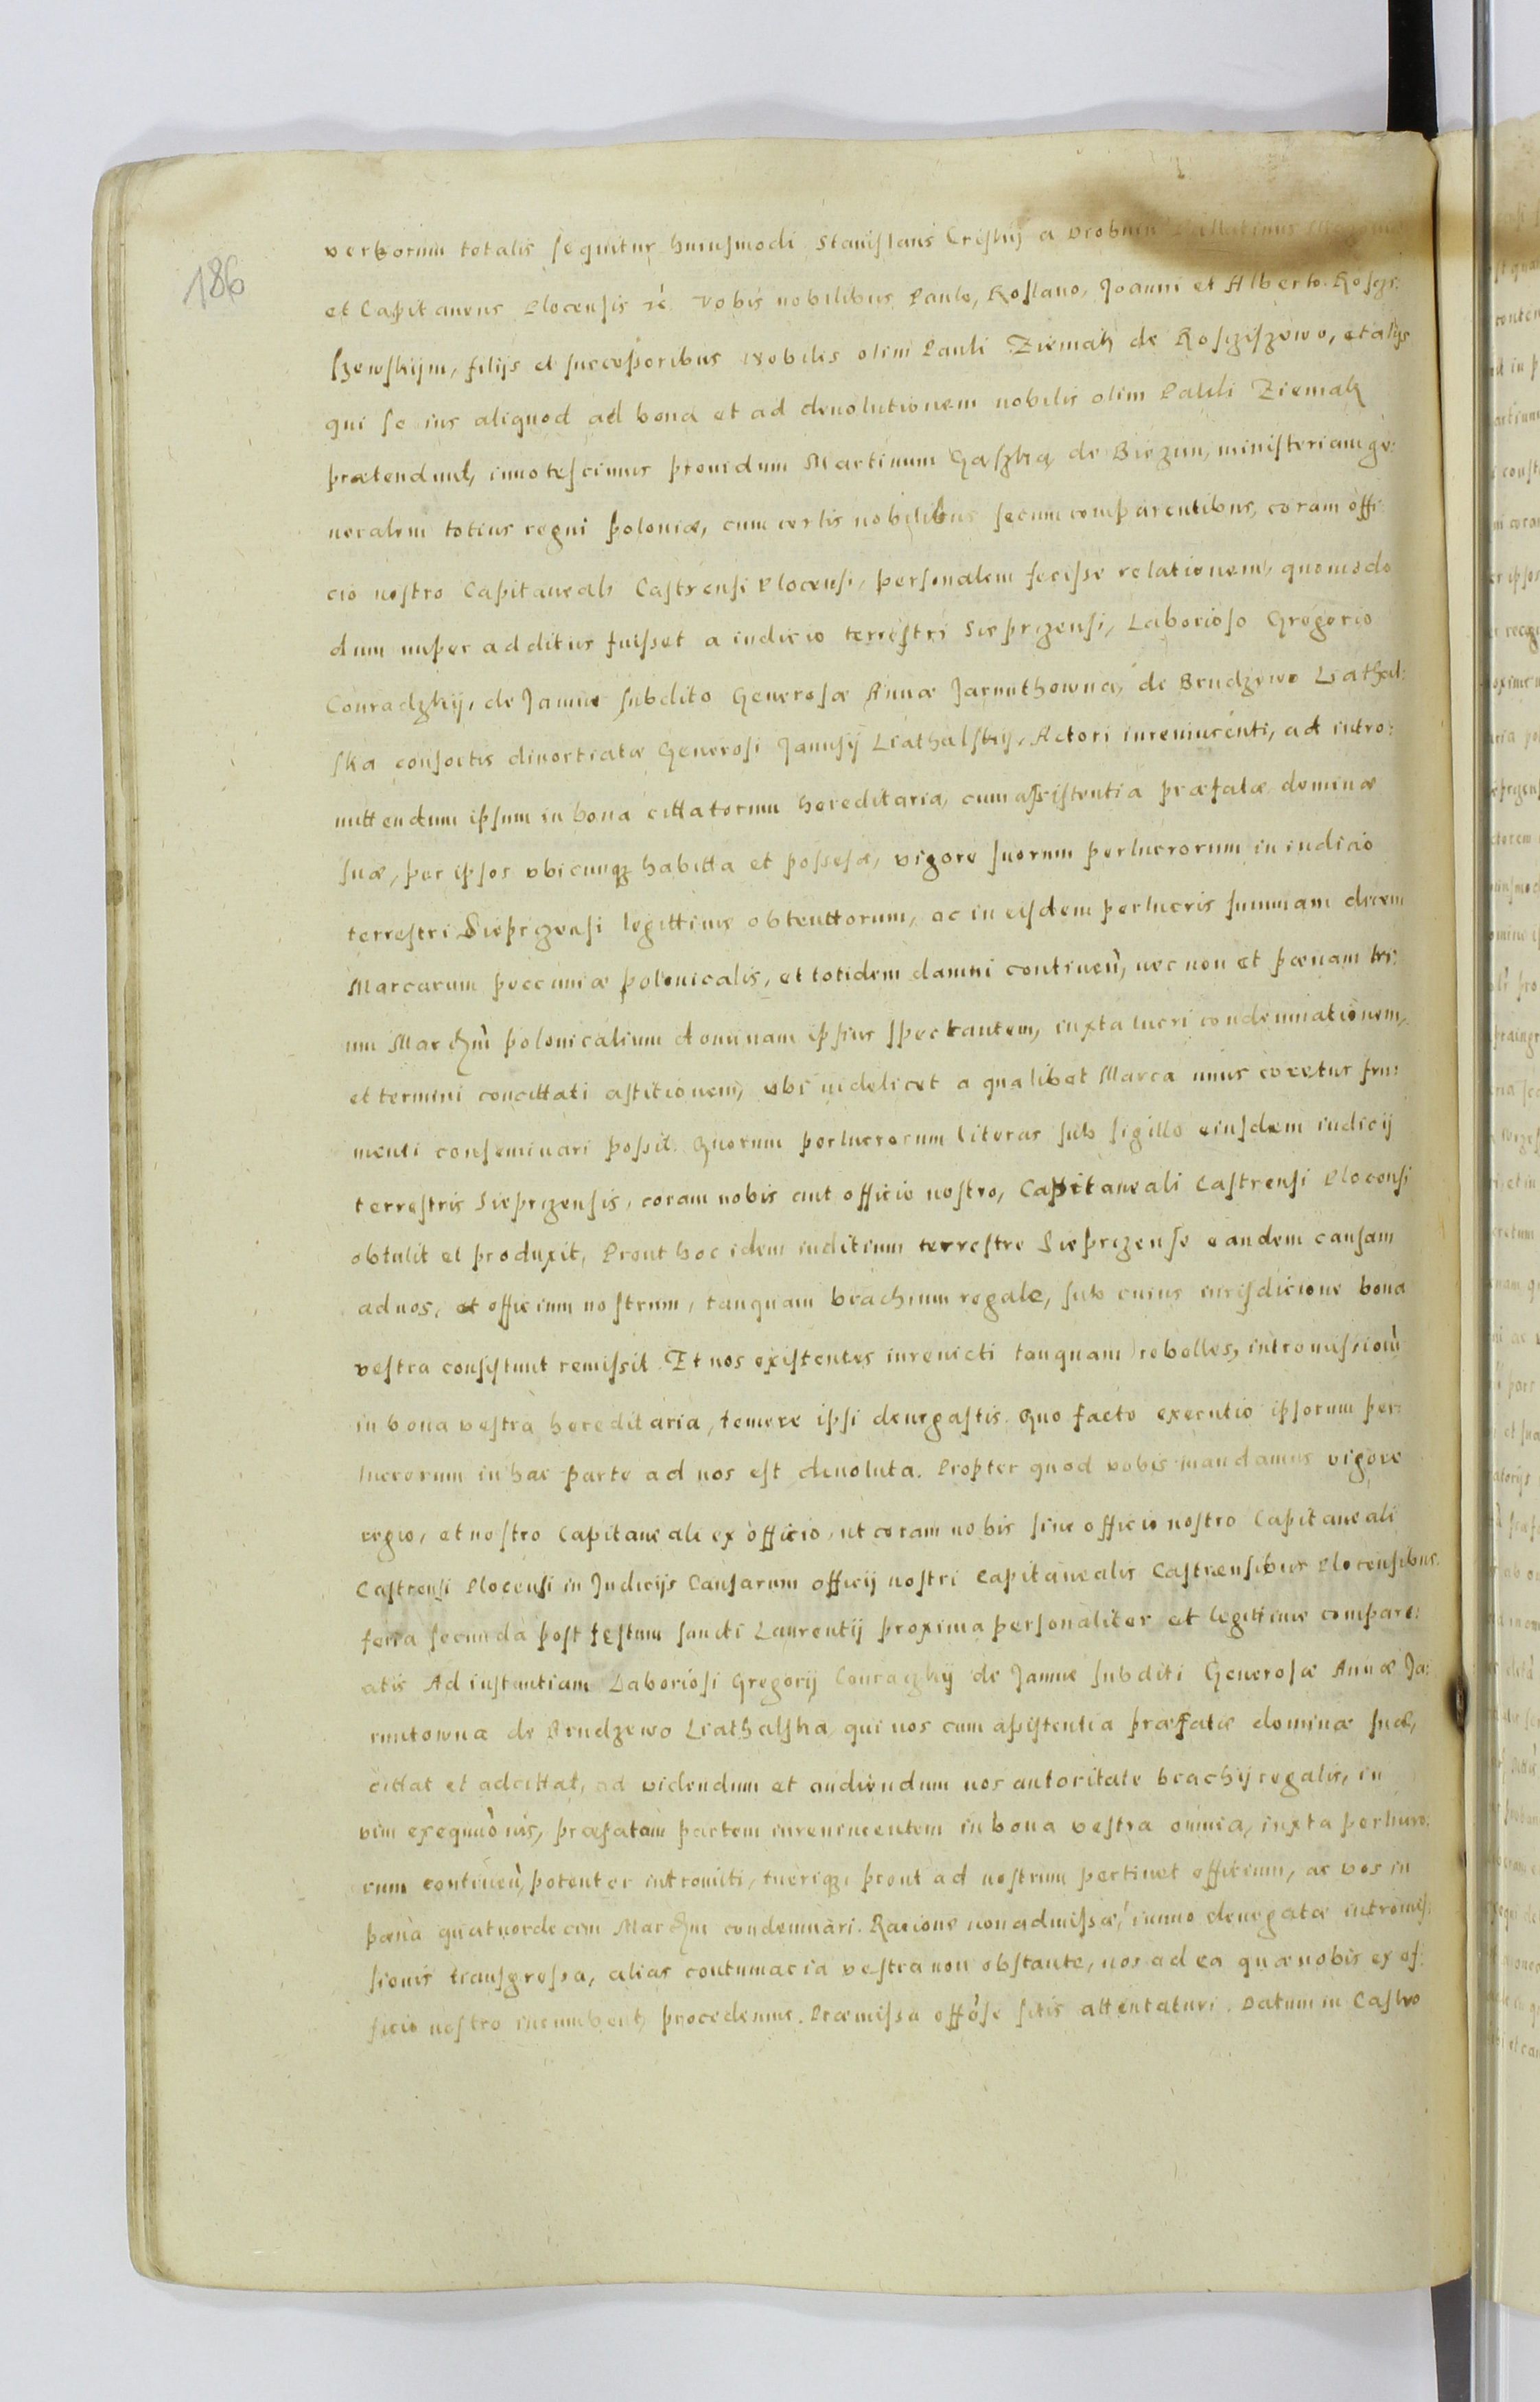 186
verborum totalis sequitur huiusmodi Stanislaus Criskij a Drobnin Pallatinus
et Capitaneus Plocensis &c. Vobis nobilibus Paulo, Roslano, Joanni et Alberto Roszi:
szewskijm, filijs et successoribus Nobilis olim Pauli Ziemak de Rosziszewo, et alijs
qui se ius aliquod ad bona et ad deuolutionem nobilis olim Pauli Ziemak
prætendunt, innotescimus prouidum Martinum Gaszka de Biezun, ministeriam ge:
neralem totius regni poloniæ, cum certis nobilibus secum comparentibus, coram offi:
cio nostro Capitaneali Castrensi Plocensi, personalem fecisse relationem, quomodo
dum nuper additus fuisset a iudicio terrestri Sieprczensi, Laborioso Gregorio
Conradzkij, de Jamne subdito Generosæ Annæ Jarnuthowna, de Brudzewo Liathal:
ska consortis diuortiatæ Generosi Janusij Liathalskij, Actori iureuincenti, ad intro:
mittendum ipsum in bona cittatorum hereditaria, cum assistentia præfatæ dominæ
suæ, per ipsos vbicunqz habitta et possesa, vigore suorum perlucrorum in iudicio
terrestri Sieprczensi legittime obtenttorum, ac in eisdem perlucris summam decem
Marcarum peccuniæ polonicalis, et totidem damni continen̄, nec non et pœnam tri:
um Marcħm̄ polonicalium dominam ipsius spectantem, iuxta lucri condemnationem,
et termini concittati astitionem, vbi uidelicet a qualibet Marca unus coretur fru:
menti conseminari possit. Quorum perlucrorum literas sub sigillo eiusdem iudicij
terrestris Sieprczensis, coram nobis aut officio nostro, Capitaneali Castrensi Plocensi
obtulit et produxit, Prout hoc idem iuditium terrestre Sieprczense eandem causam
ad nos, et officium nostrum, tanquam brachium regale, sub cuius iurisdicione bona
vestra consistunt remissit. Et nos existentes iureuicti tanquam rebelles, intromission̄
in bona vestra hereditaria, temere ipsi denegastis. Quo facto executio ipsorum per:
lucrorum in hac parte ad nos est deuoluta. Propter quod vobis mandamus vigore
regio, et nostro Capitaneali ex officio, ut coram nobis siue officio nostro Capitaneali
Castrensi Plocensi in Judicijs Causarum officij nostri Capitanealis Castrensibus Plocensibus.
feria secunda post festum sancti Laurentij proxima personaliter et legittime compare:
atis Ad instantiam Laboriosi Gregorij Conraczkij de Jamne subditi Generosæ Annæ Ja:
rnutowna de Brudzewo Liathalska, qui uos cum assistentia præfatæ dominæ suæ,
cittat et adcittat, ad videndum et audiendum nos autoritate brachij regalis, in
vim exequuōnis, præfatam partem iureuincentem in bona vestra omnia, iuxta perlucro:
rum continen̄, potenter intromitti, tueriqz, prout ad nostrum pertinet officium, ac vos in
pœna quatuordecim Marcħm condemnari. Racione non admissæ, immo denegatæ intromis:
sionis transgressa, alias contumacia vestra non obstante, nos ad ea quæ nobis ex of:
ficio nostro incumbent, procedemus. Præmissa offōse sitis attentaturi. Datum in Castro